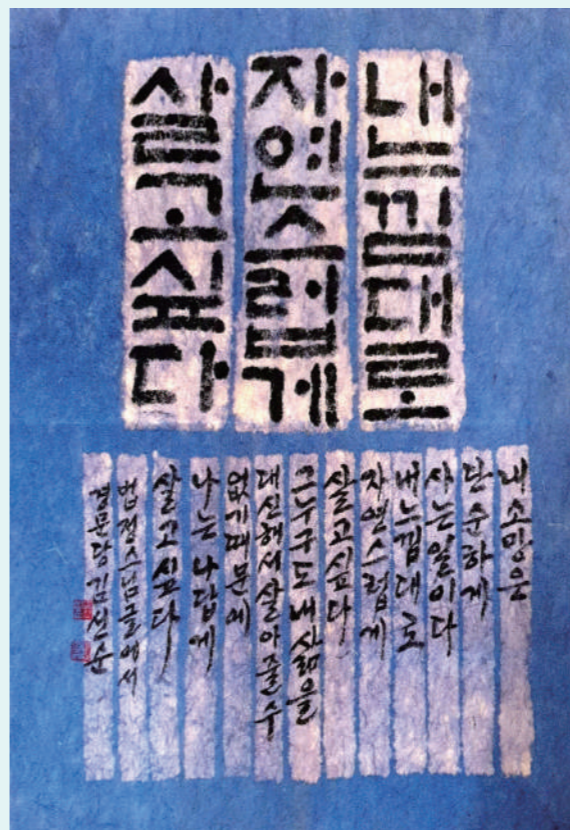 내느낌대로
자연스럽게
살고싶다
내 소망은
단순하게
사는일이다
내느낌대로
자연스럽게
살고싶다
그누구도 내 삶을
대신해서살아줄수
없기때문에
나는 나답게
살고싶다
법정스님글에서
경문당 김선순